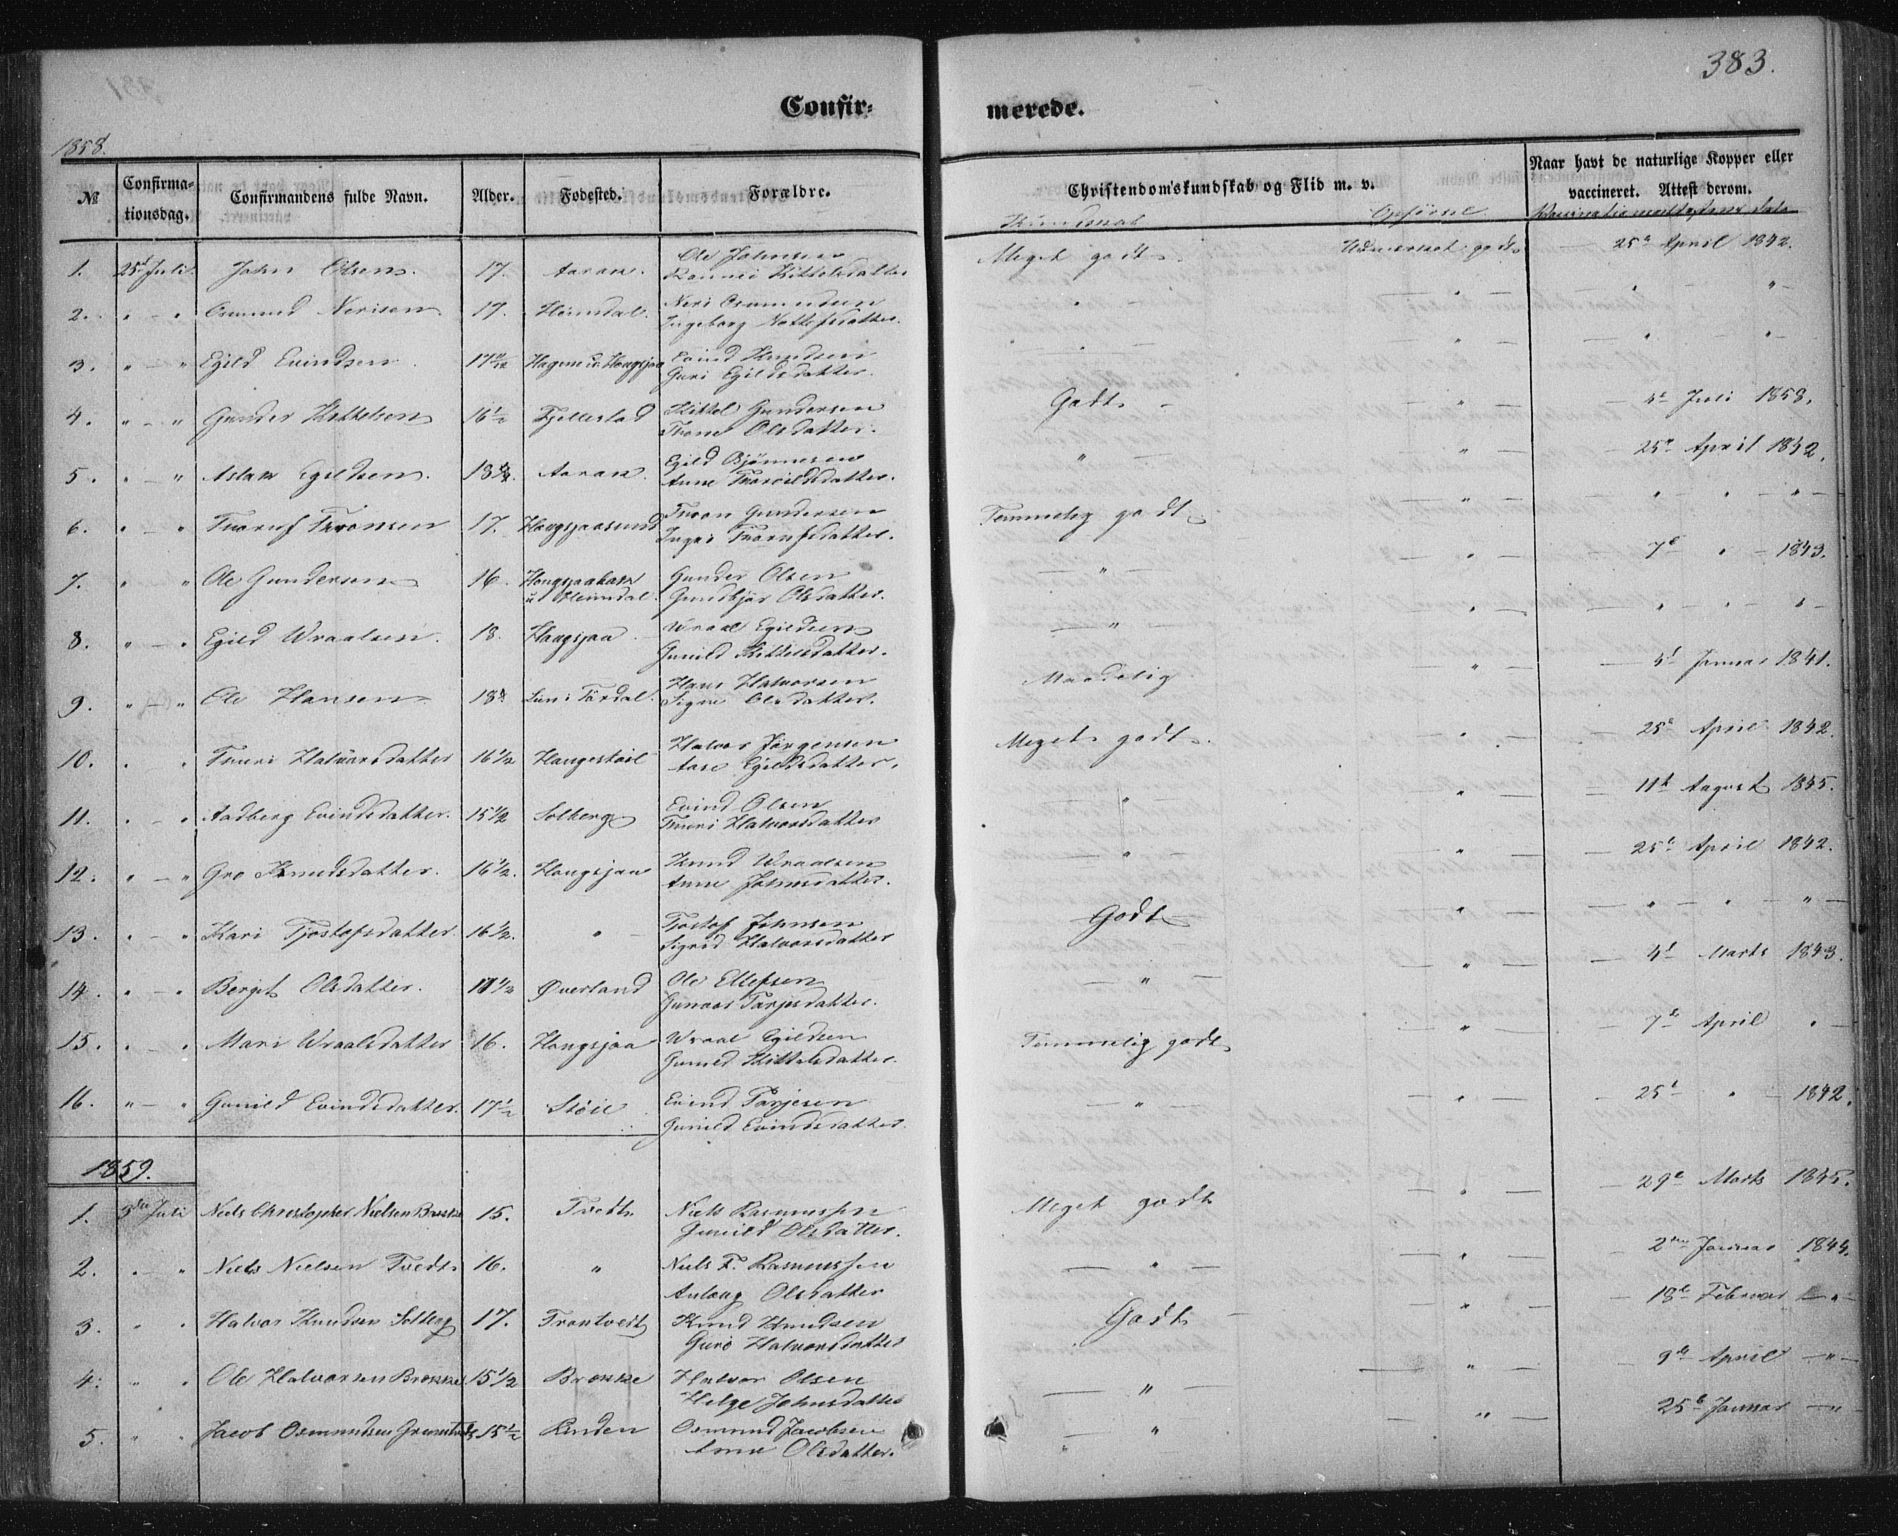 383.
Confir-
merede.
1858.
№
Confirma-
tionsdag.
Confirmandens fulde Navn.
Alder.
Fødested.
Forældre.
Christendomskundskab og Flid m. v.
Naar havt de naturlige Kopper eller
vaccineret. Attest derom.
Kundskab
Opførsel
1. 25d Juli John Olsen 17. Aaraas. Ole Johnsen
Kittilsdatter
Meget godt Udmærket godt 25d April 1842.
2. " — " Osmund Nerisen 17. Heimdal. Neri Osmundsen
Ingeborg
" — — " — " "
3. " — " Egild Evindsen Hagene u. Haugsjaa Evind Knudsen
Guri Egildsdatter
" — — " — " "
4. " — " Gunder Kittelsen 16½ Fjellestad Kittel Gundersen
Tone Olsdatter.
Godt — — " — — 4d Juli 1858.
5. " — " Aslak Egildsen. Aaraas. Egild Bjønnesen
Anne
" — " — 25d April 1842.
6. " — " Thoruf Thronsen 17. Haugsjaasund Thron Gundersen
Ingri Thorufsdatter.
Temmelig godt — " — " — " — " —
7. " " Ole Gundersen 16. Haugsjaabakk
u. Heimdal. Gunder Olsen
Gundbjør Olsdatter.
— " — — " — 7d " — 1843.
8. " — " Egild Wraalsen. 18. Haugsjaa. Wraal Egildsen
Gunild Kittilsdatter.
— " — — " — — " " " —
9. " — " Ole Hansen Tørdal. Hans Halvorsen
Signe Olsdatter.
Maadelig — " — — 4d Januar 1841.
10. " " Thuri Halvorsdatter 16½ Haugestøil Halvor Jørgensen
Aase Egildsdatter.
Meget godt. — " — — 25d April 1842.
11. " — " Aadberg Evindsdatter. 15½ Solberg Evind Olsen
Thuri Halvorsdatter
— " — — " — — 11d August 1845.
12. " — " Gro Knudsdatter. 16½. Haugsjaa Knud Wraalsen
Anne Johnsdatter.
— " — — " — — 25d April 1842.
13. " — " Kari Tjostofsdatter. 16½. " — Tjostof Johnsen
Sigrid Halvorsdatter
Godt — " — — " — " — " —
14. " — " Berget Olsdatter. Øverland Ole Ellefsen
Gunvor Tarjesdatter.
— " — — " — — 4d Marts 1843.
15. " — " Mari Wraalsdatter 16. Haugsjaa Wraal Egildsen
Gunild Kittilsdatter.
Temmelig godt — " — — 7d April " —
16. " — " Gunild Evindsdatter. 17½ Støile Evind Tarjesen
Gunild Evindsdatter.
— " — — " — — 25d " — 1842.
1859.
1. 3die Juli Niels Christopher Nielsen Brokke 15. Tvedt Niels Rasmussen
Gunild Olsdatter.
Meget godt — " — — 29d Marts 1845.
2. " — " Niels Nielsen Tvedt. 16. " Niels F. Rasmussen
Anlaug Olsdatter
— " — — " — 2den Januar 1844.
3. " " Halvor Knudsen Solberg 17. Trontvedt Knud Knudsen
Guro Halvorsdatter
Godt — — " — — 18d Februar — " —
4. " " Ole Halvorsen Brokke 15½ Brokke Halvor Olsen
Helge Johnsdatter
— " — — " — — 9d April — " —
5. " " Jacob Osmundsen 15½ Rinden Osmund Jacobsen
Anne Olsdatter.
— " — — " — 25d Januar — " —